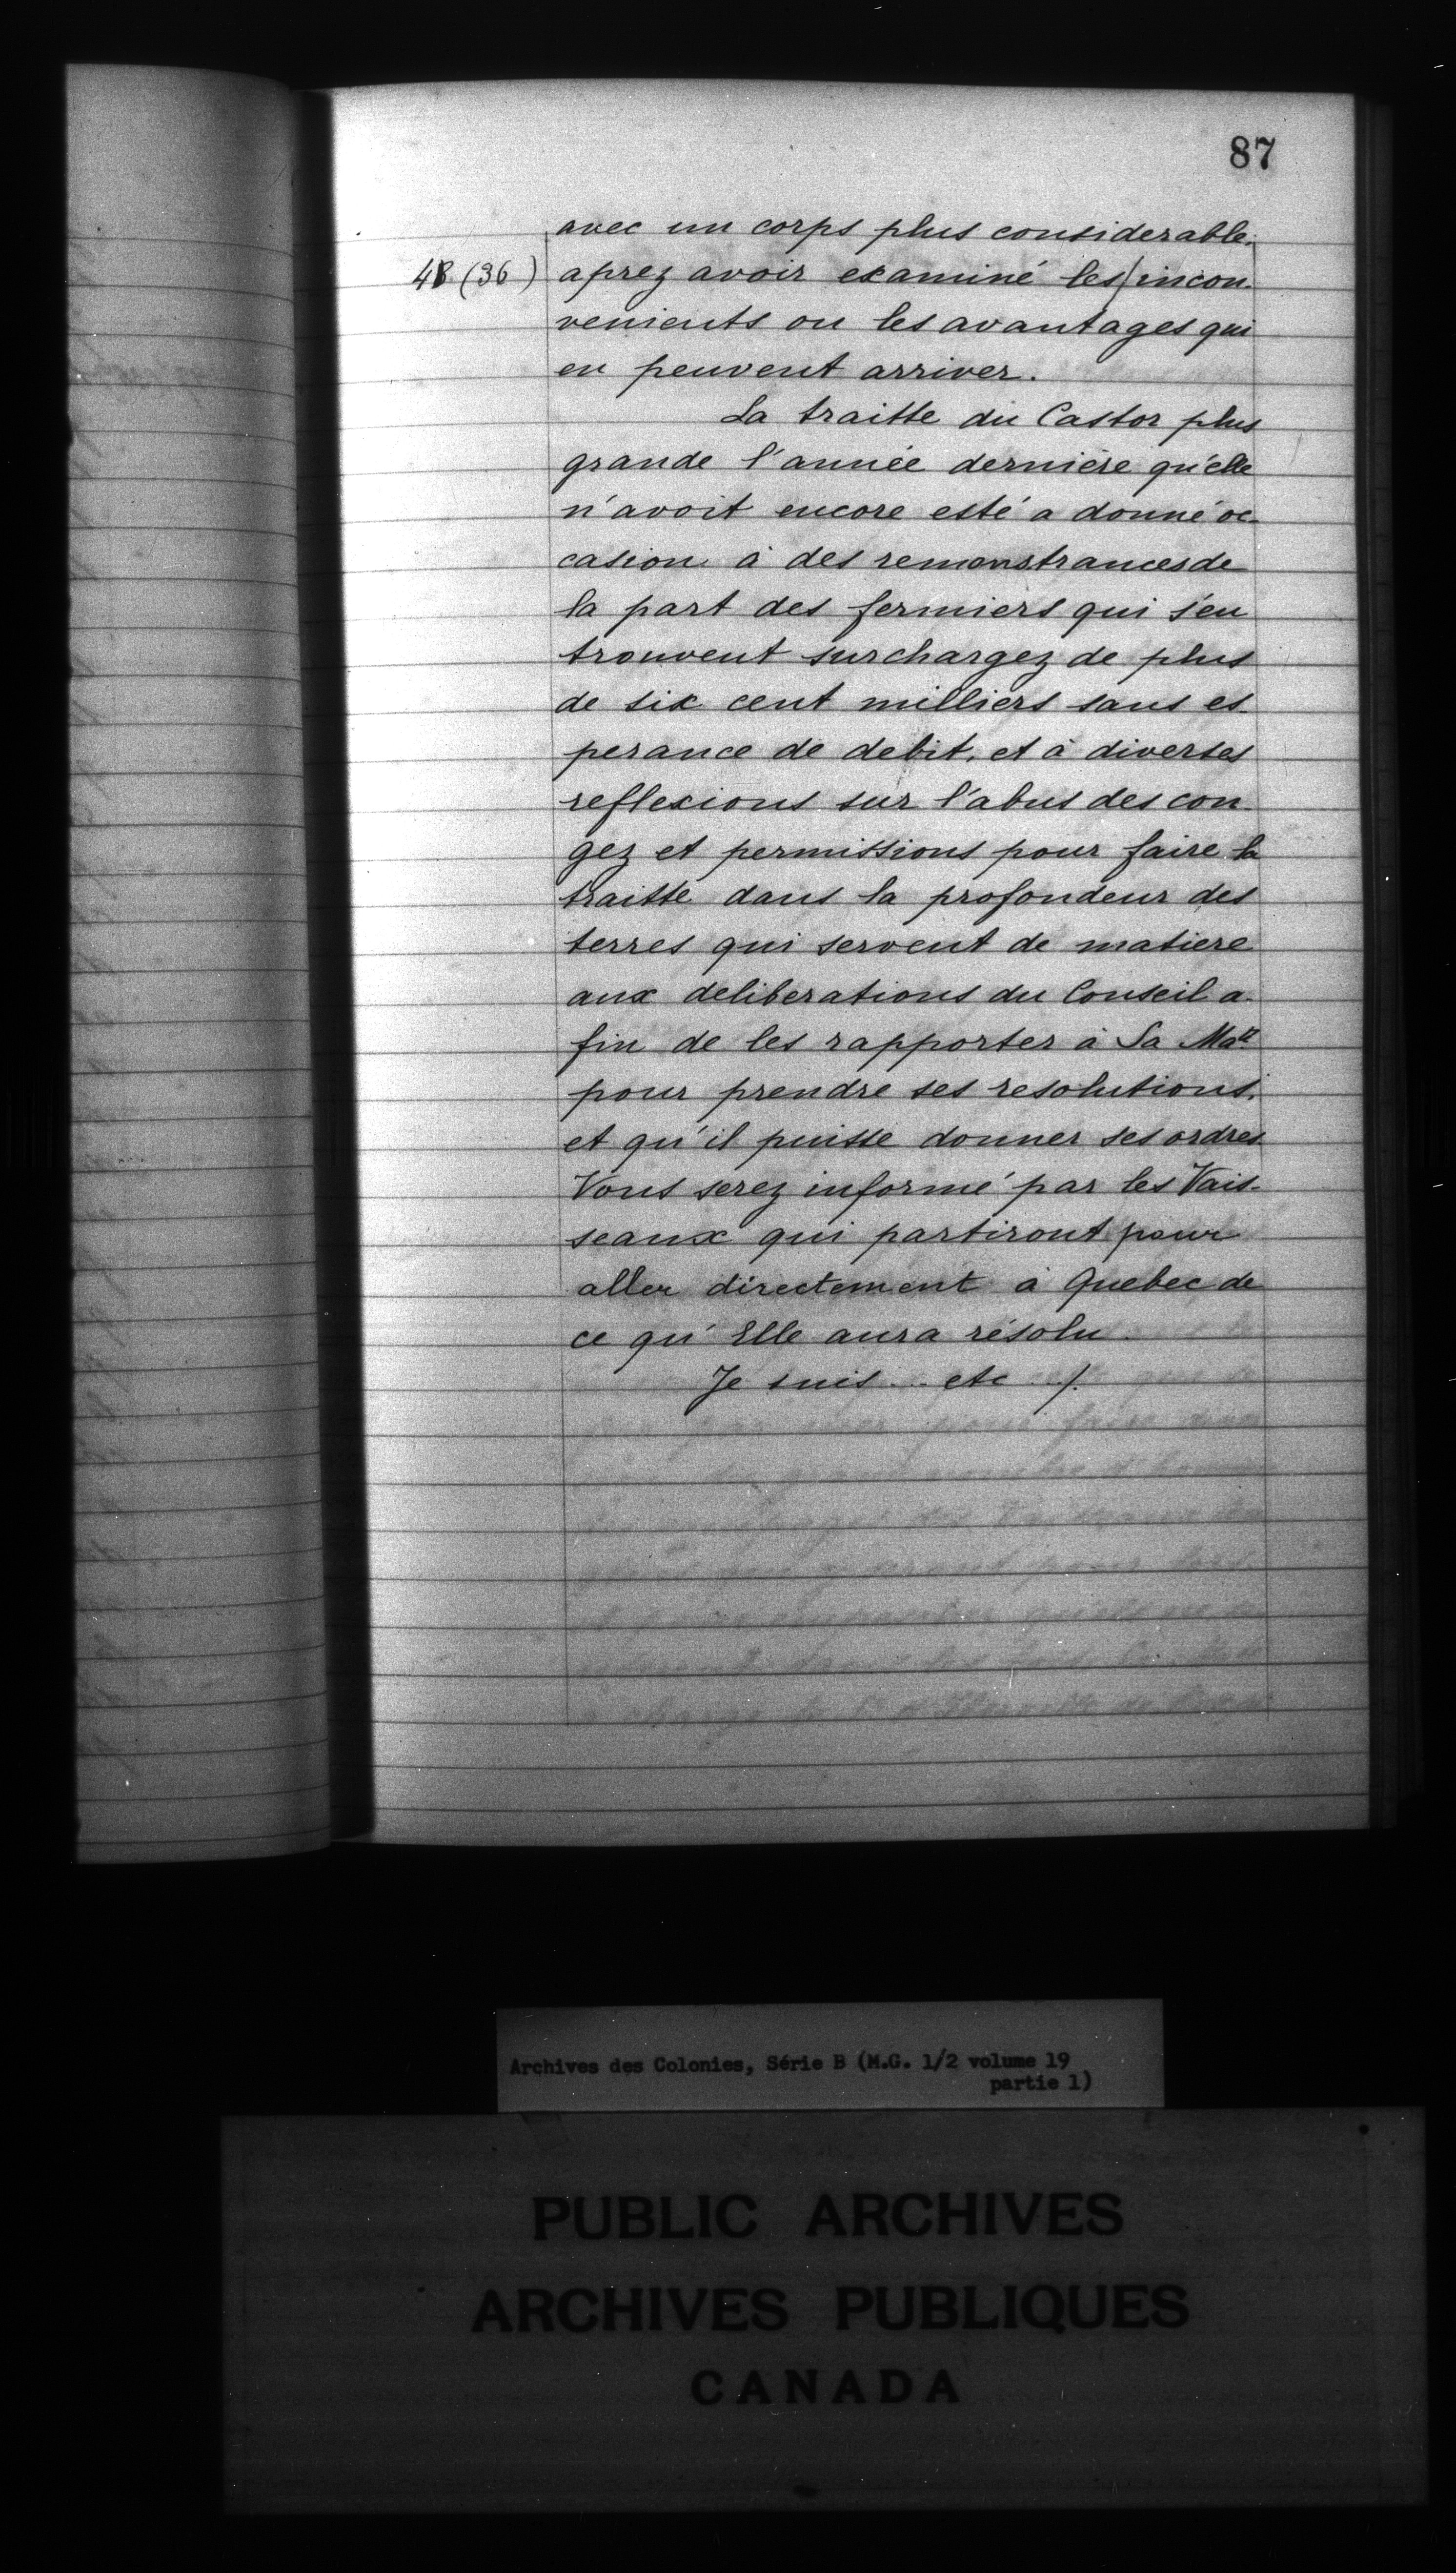 87
avec un corps plus considerable.
48 (36) aprez avoir examiné les/incon-
venients ou les avantages qui
en peuvent arriver.
La traitte du Castor plus
grande l'année derniére qu'elle
n'avoit encore esté a donné oc-
casion à des remonstrances de
la part des fermiers qui s'en
trouvent surchargez de plus
de six cent milliers sans es-
perance de debit, et à diverses
reflexions sur l'abus des con-
gez et permissions pour faire la
traitte dans la profondeur des
terres qui servent de matiere
aux deliberations du Conseil a-
fin de les rapporter à Sa Maté
pour prendre ses resolutions,
et qu'il puisse donner ses ordres
Vous serez informé par les Vais-
seaux qui partiront pour
aller directement à Quebec de
ce qu'Elle aura résolu.
Je suis ... etc ./.
Archives des Colonies, Série B (M.G. 1/2 volume 19
partie 1)
PUBLIC ARCHIVES
ARCHIVES PUBLIQUES
CANADA